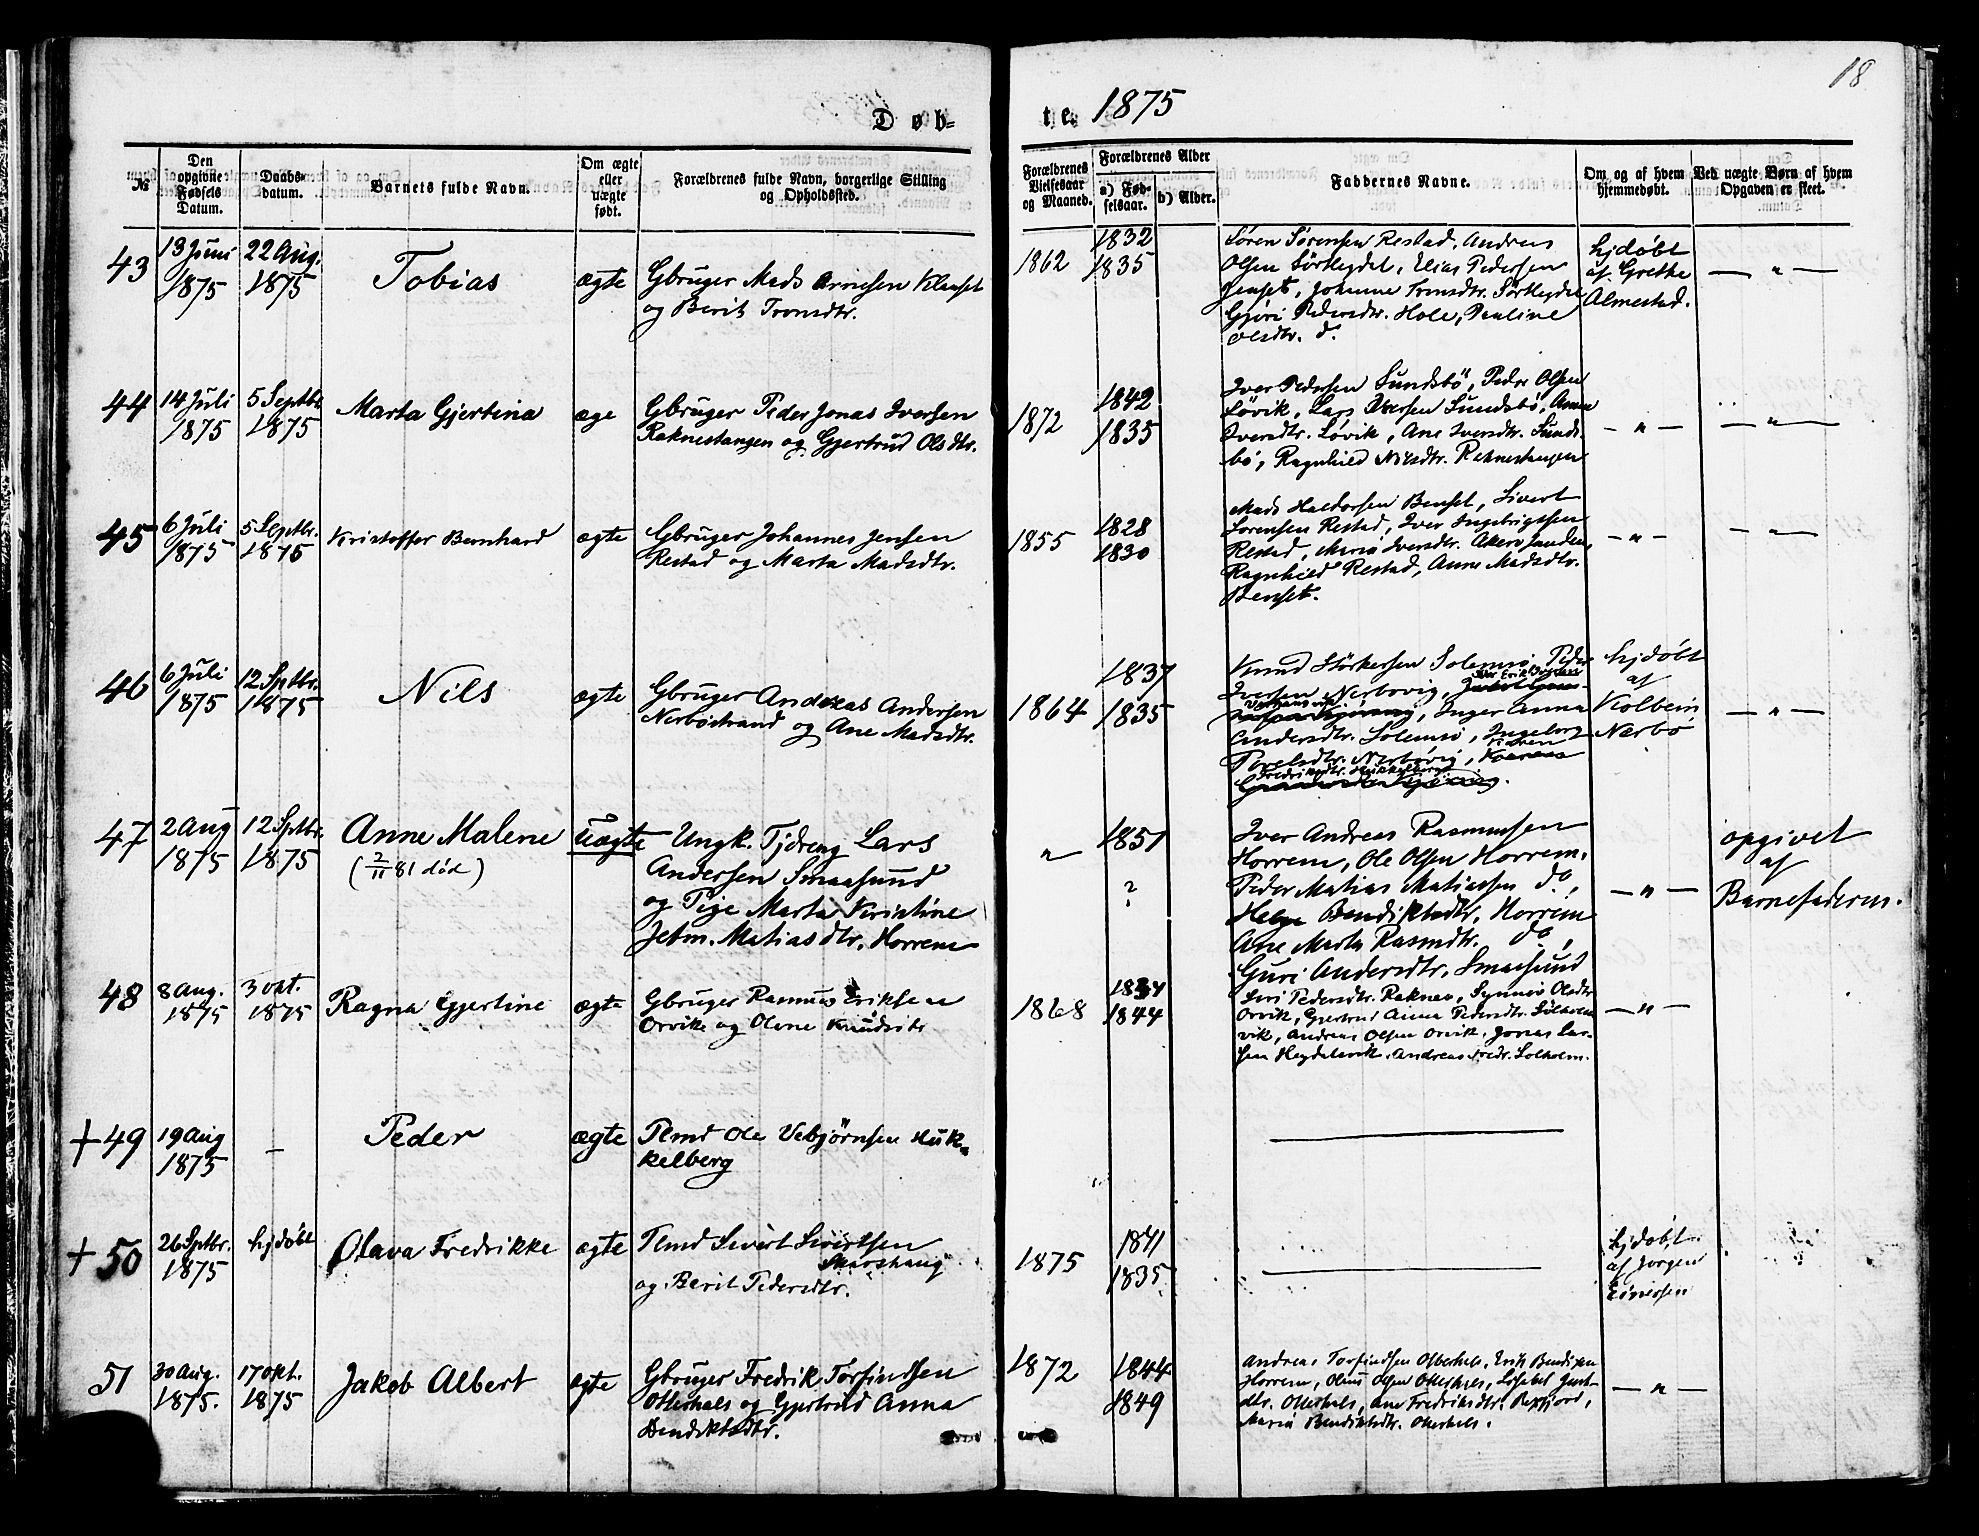 18
Døb-
te. 1875
№
Den opgivne Fødsels Datum.
Daabs-datum.
Barnets fulde Navn.
Om ægte eller uægte født.
Forældrenes fulde Navn, borgerlige Stilling og Opholdssted.
Forældrenes Vielsesaar og Maaned.
Forældrenes Alder
a) Fødselsaar.
b) Alder.
Faddernes Navne.
Om og af hvem hjemmedøbt.
Ved uægte Børn af hvem Opgaven er skeet.
43
13 Juni
1875
22 Aug.
1875
Tobias
ægte
Gbruger Mads Arnesen
og Berit Tronsdtr.
1862
1832
1835
Søren Sørensen Restad, Andreas
Olsen Sørheydal, Elias Pedersen
Jenset, Johanne Tronsdtr. Sørheydal
Gjøri Pedersdtr. Hole, Pauline
Olsdtr. d.
hjdøbt
af Grethe
Almestad.
— " —
44
14 Juli
1875
5 Septbr
1875
Marta Gjertina
æge
Gbruger Peder Jonas Iversen
Raknestangen og Gjertrud Olsdtr.
1872
1842
1835
Iver Pedersen Sundsbö, Peder Olsen
Løvik, Lars Iversen Sundsbö, Anne
Iversdtr. Løvik, Ane Iversdtr. Sunds-
bö, Ragnhild Nilsdtr. Raknestangen
— " —
— " —
45
6 Juli
1875
5 Septbr.
1875
Kristoffer Bernhard
ægte
Gbruger Johannes Jensen
Restad og Marta Madsdtr.
1855
1828
1830
Mads Haldorsen Benset, Sivert
Sørensen Restad, Iver Ingebrigtsen
Restad, Maria Iversdtr.
Ragnhild Restad, Anne Madsdtr.
Benset.
— " —
— " —
46
6 Juli
1875
12 Sptbr.
1875
Nils
ægte
Gbruger Andreas Andersen
Nerbøstrand og Ane Madsdtr.
1864
1837
1835
Knud Størkersen Solemsø, Peder
Iversen Nerbovig,
Inger Anna
Andersdtr. Solemsø, Ingeborg
Nerbøvig,
hjdøbt
af
Kolbein
Nærbø
— " —
47
2 Aug
1875
12 Sptbr.
1875
Anne Malene
(2/11 81 død)
uægte
Ungk. Tjdreng Lars
Andersen Smaasund
og Pige Marta Kristine
Jetm. Matiasdtr. Horrem
"
1851
?
Iver Andreas Rasmussen
Horrem, Ole Olsen Horrem,
Peder Matias Matiassen do,
Bendiktsdtr, Horrem
Ane Marta Rasmdtr. do,
Guri Andersdtr, Smaasund
— " —
opgivet
af
Barnefaderen.
48
8 Aug.
1875
3 Okt.
1875
Ragna Gjertine
ægte
Gbruger Rasmus Eriksen
Orvik og Olene Knudsdtr
1868
1834
1844
Siri Pedersdtr. Raknes, Synnøv Olsdtr
Orvik, Gjertrud Anna Pedersdtr. Solholm
vik, Andreas Olsen Orvik, Jonas Lar-
sen Heydalsvik, Andreas Pedr. Solholm.
— " —
+ 49
19 Aug
1875
—
Peder
ægte
Plmd Ole Vebjørnsen Huk-
kelberg
+ 50
26 Sptbr.
1875
hjdøbt
Olava Fredrikke
ægte
Plmd Sivert Sivertsen
Skarshaug
og Berit Pedersdtr.
1875
1841
1835
hjdøbt
af Jørgen
51
30 Aug.
1875.
17 Okt.
1875
Jakob Albert
ægte
Gbruger Fredrik Torfindsen
Otterhals og Gjertrud Anna
Bendiktsdtr.
1872
1844
1849
Andreas Torfindsen Otterhals, Erik Bendixen
Horrem, Olaus Olsen Otterhals, Lisabet Juel-
dtr. Otterhals, Ane Fredriksdtr.
Maria Bendiktsdtr. Otterhals.
— " —